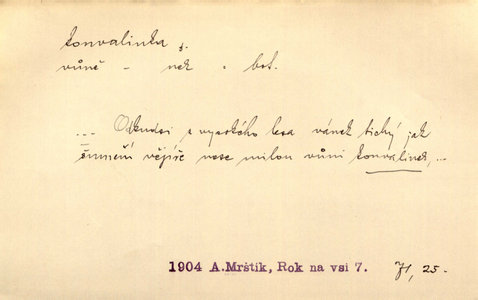 konvalinka f.
vůně - nek . bot.
... Odkudsi z vysokého lesa vánek tichý jak
šumění vějíře nese milou vůni konvalinek, ...
1904 A.Mrštík, Rok na vsi 7. 71, 25.